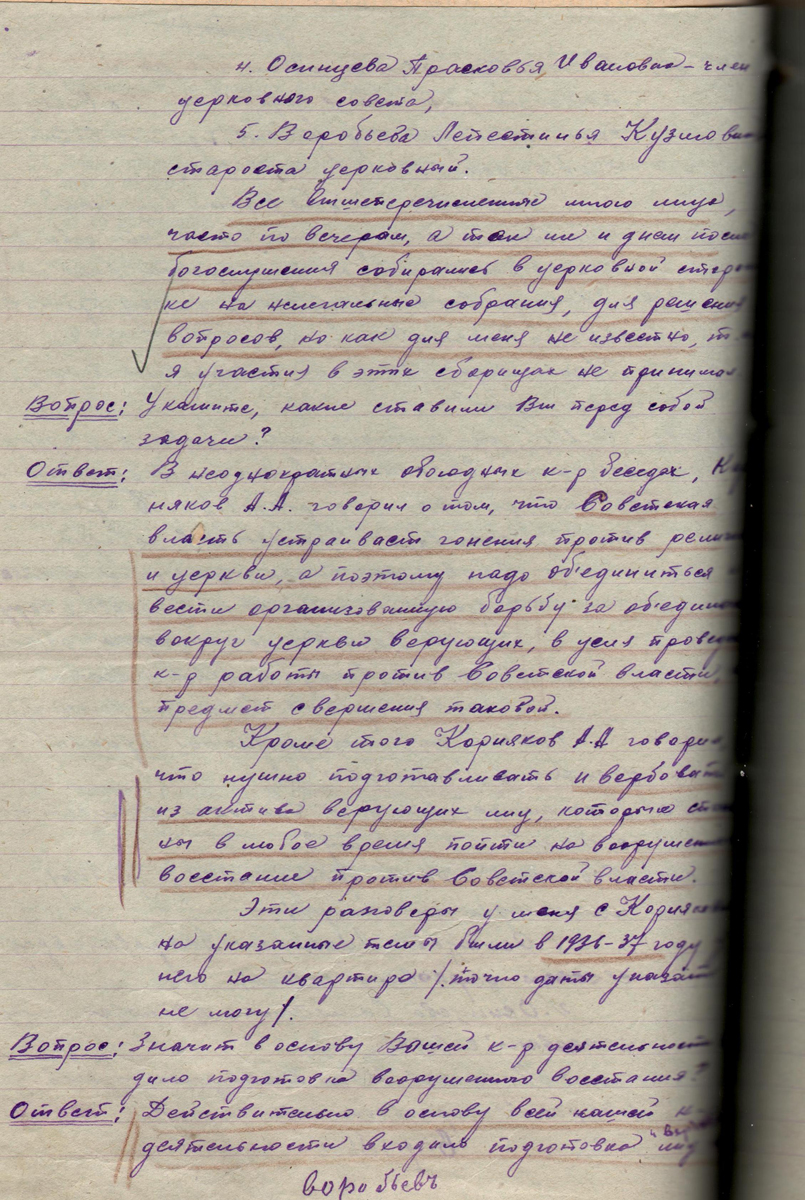 4. Осинцева Прасковья Ивановна – член
церковного совета,
5. Воробьева Лепестинья
староста церковный.
Все вышеперечисленные мною лица,
часто по вечерам, а так же и днем после
богослушения собирались в церковной сторо
ке на нелегальные собрания, для решения
вопросов, но как для меня не известно, т.
я участия в этих сборищах не принимал
Вопрос: Укажите, какие ставили Вы перед собой
задачи?
Ответ: В неоднократных обоюдных к-р беседах,
няков А.А. говорил о том, что Советская
власть устраивает гонения против религии
и церкви, а поэтому надо объединиться
вести организованную борьбу за объедине
вокруг церкви верующих, в целя провед
к-р работы против Советской власти,
предмет свершения таковой.
Кроме того Корняков А.А говорил,
что нужно подготавливать и вербовать
из актива верующих лиц, которые
ны в любое время пойти на вооружен
восстание против Советской власти.
Эти разговоры у меня с Корняков
на указанные темы были в 1936-37 году
него на квартире /точно даты указать
не могу/.
Вопрос: Значит в основу Вашей к-р деятельности
дило подготовка вооруженного восстания?
Ответ: Действительно в основу всей нашей к-
деятельности входило подготовка лиц
воробьевъ